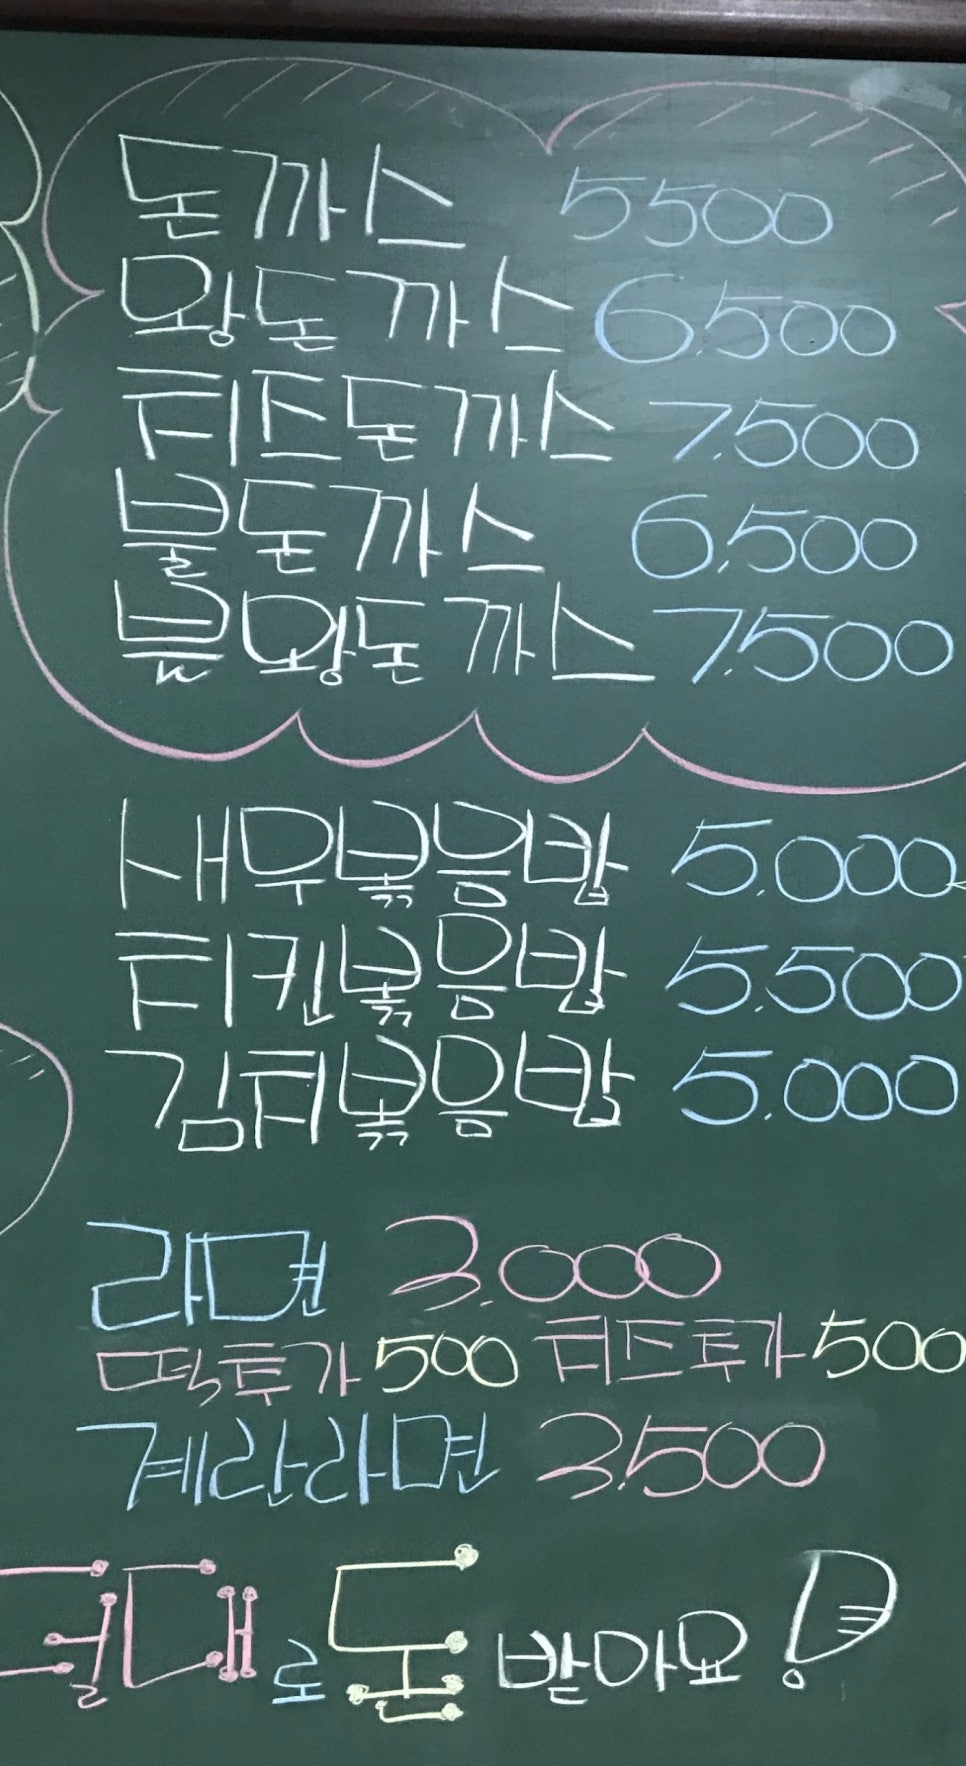 돈까스 5500
왕돈까스 6.500
치즈돈까스 7.500
불돈까스 6,500
불왕돈까스 7.500
새우볶음밥 5.000
치킨볶음밥 5.500
김치볶음밥 5.000
라면 3.000
떡투가 500 치즈투가 500
계란라면 3.500
절대로 돈 받아요!